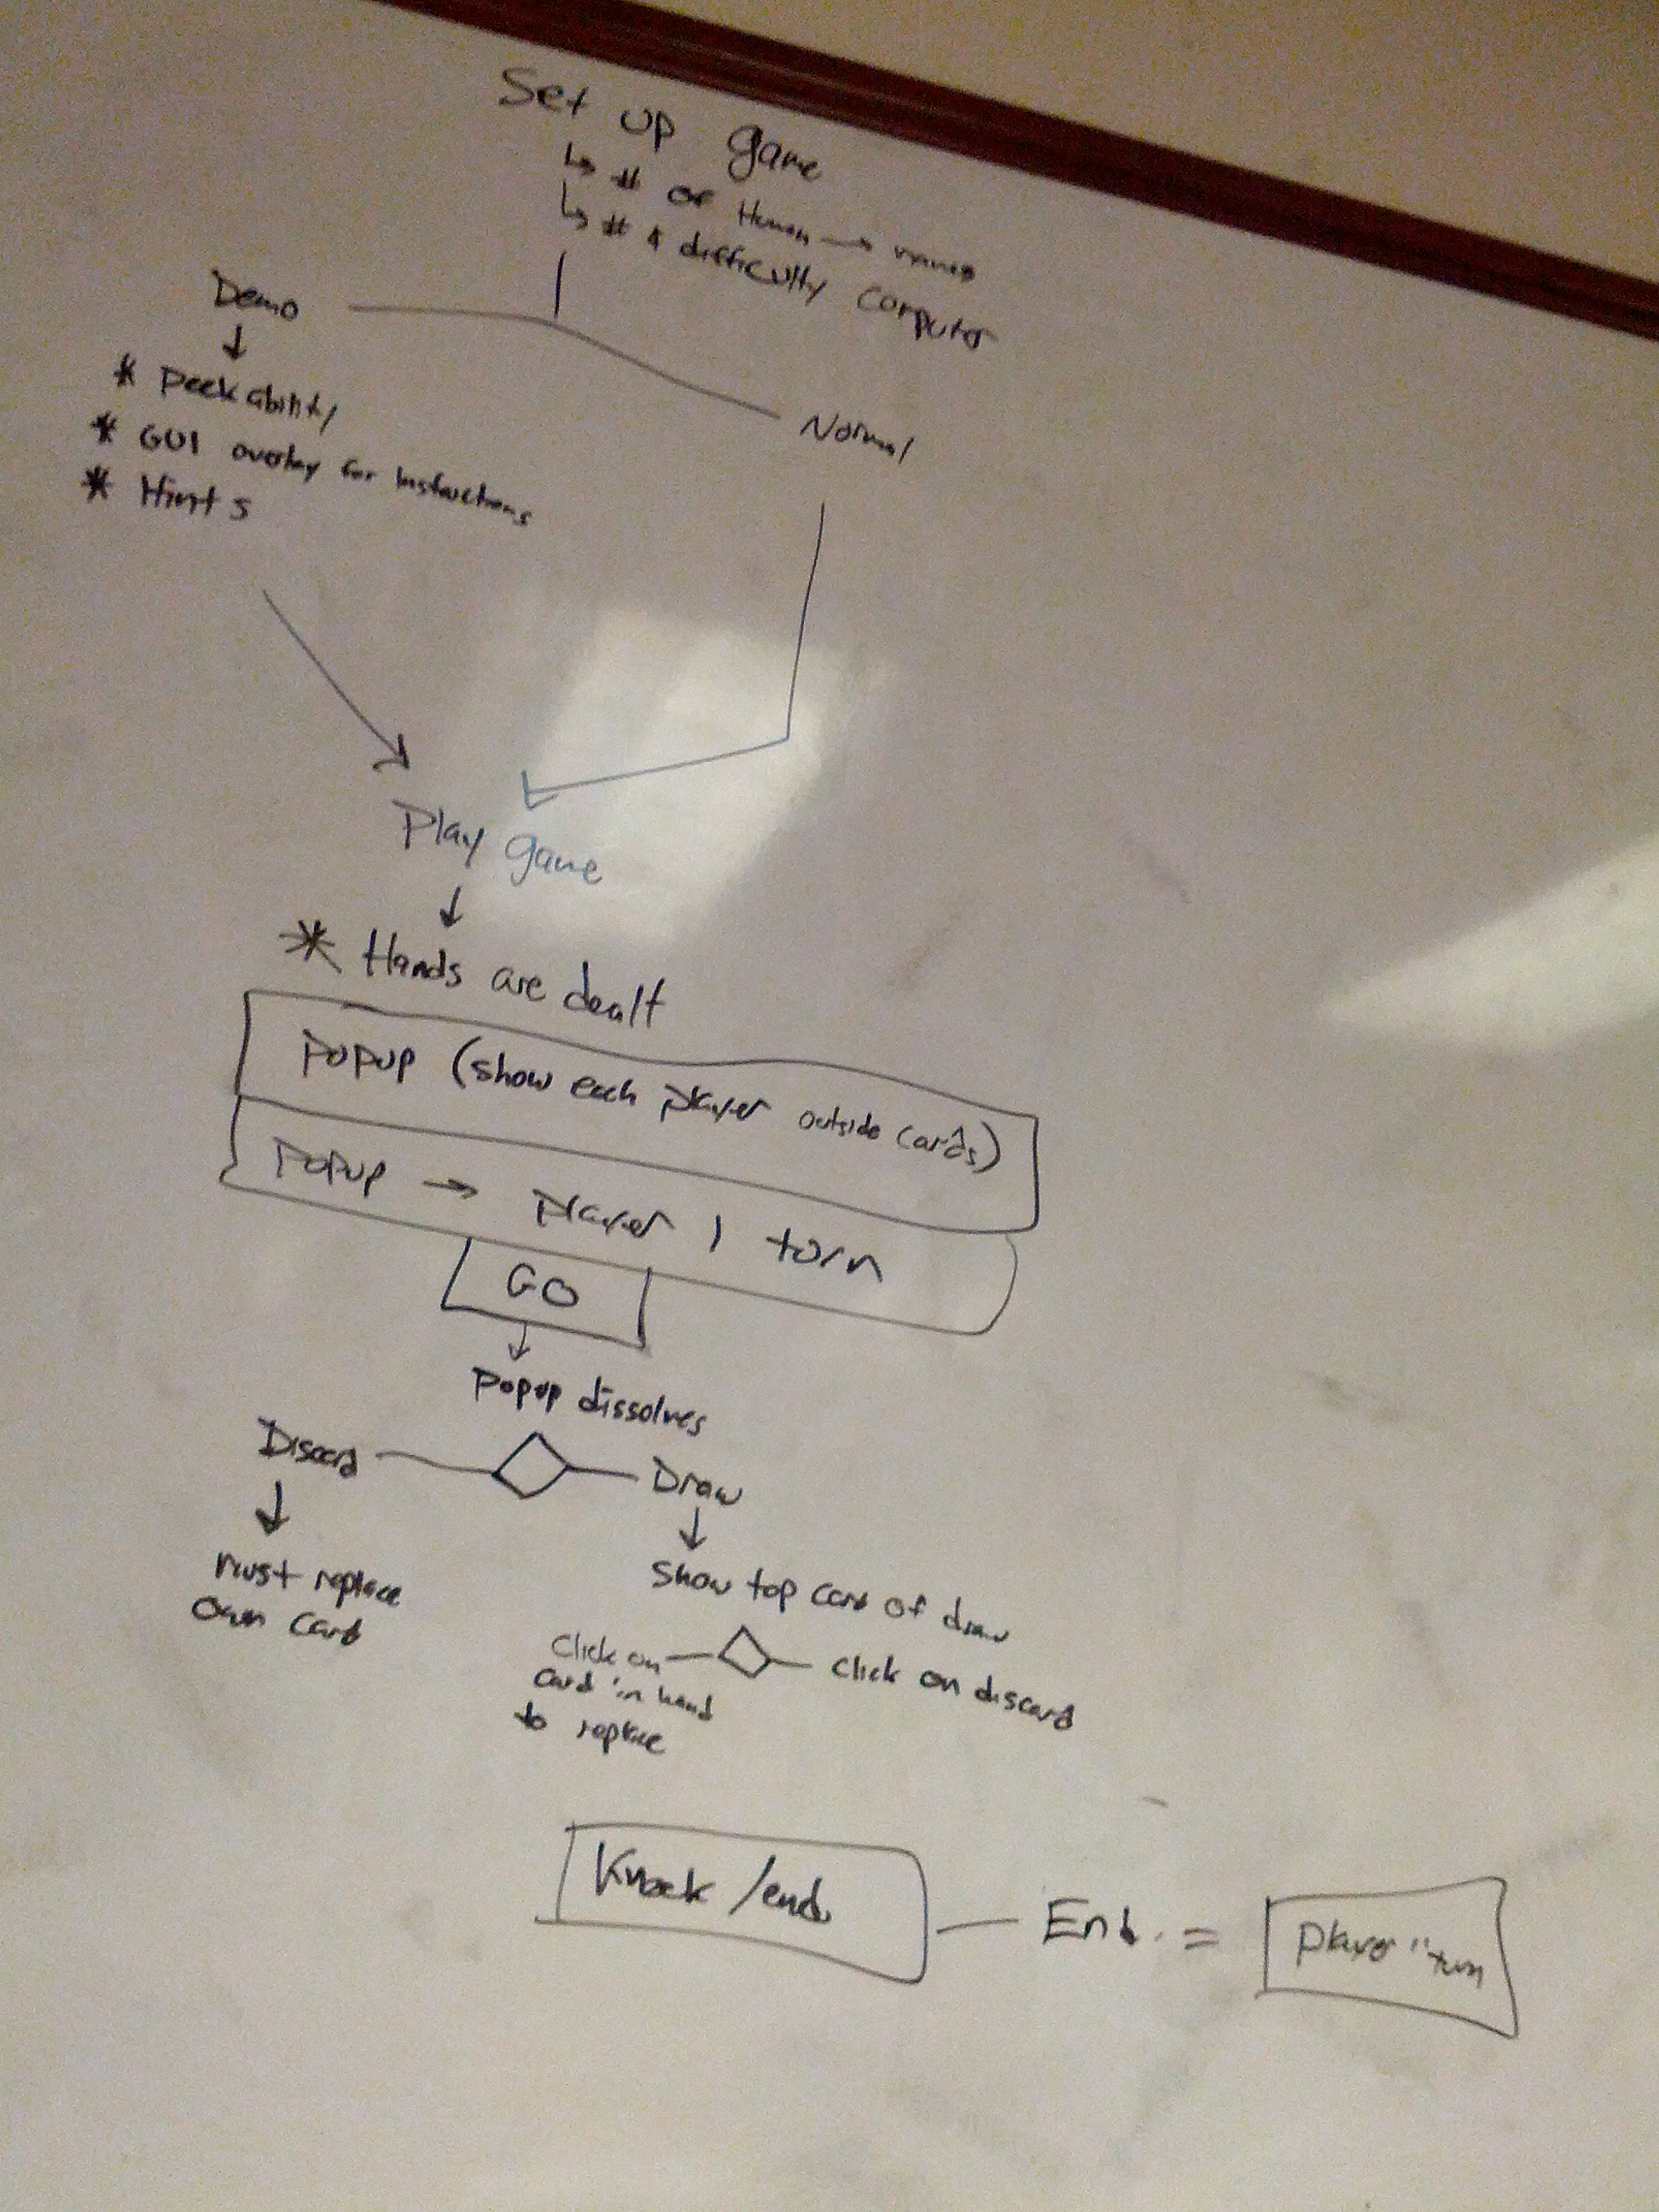 Set up game
↳ # of Human → names
↳ # & difficulty computer
Demo
* Peekability
* GUI overlay for instructions
* Hints
Normal
Play game
* Hands are dealt
Popup (show each player outside cards)
Popup → player 1 turn
GO
Popup dissolves
Discard
Draw
must replace
own card
Show top card of draw
Click on
card in hand
to replace
click on discard
Knock /end
End. =
player " turn